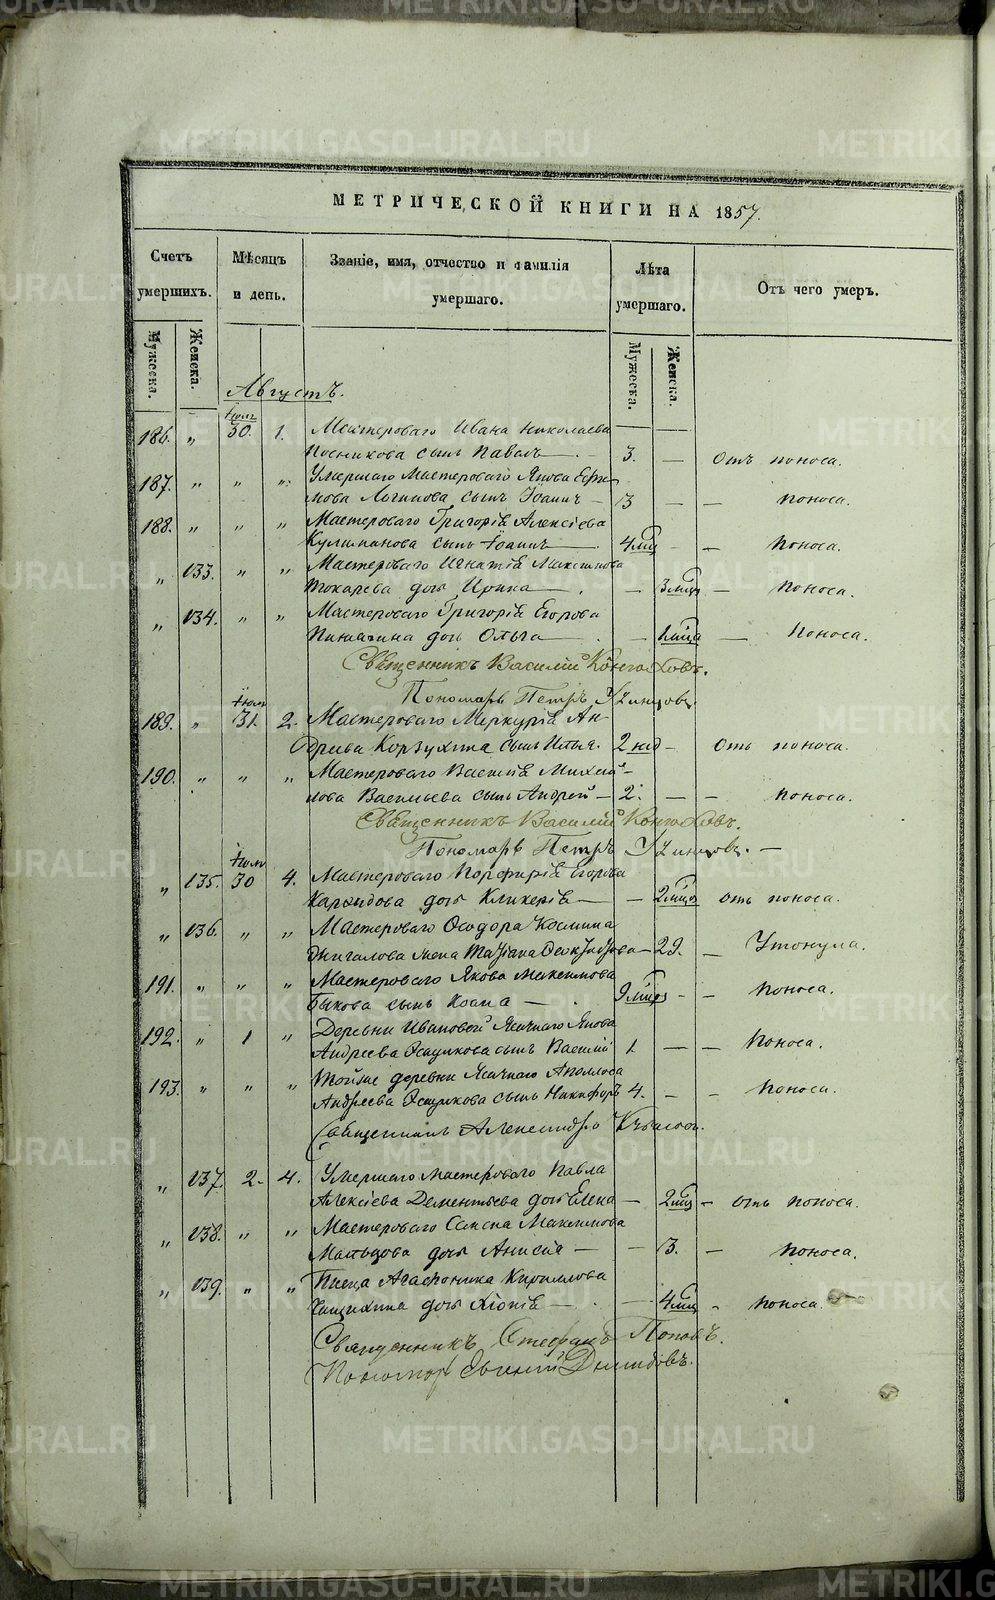 МЕТРИЧЕСКОЙ КНИГИ НА 1857.
Счетъ умершихъ. Мѣсяцъ и день. Званіе, имя, отчество и фамилія умершаго. Лѣта умершаго. Отъ чего умеръ.
Мужеска. Женска. Мужеска. Женска.
Августъ.
Іюля
186. " 30. 1. Мастероваго Ивана Николаева
сынъ Павелъ — 3. — Отъ поноса.
187. " " " Умершаго Мастероваго Якова Ефи-
мова Логинова сынъ Іоаннъ — 3 — — поноса.
188. " " " Мастероваго Григорія Алексіева
сынъ Іоаннъ — 4 мца — — поноса.
" 133. " " Мастероваго Игнатія Максимова
Токарева дочь Ирина — — 3 мца — поноса.
" 134. " " Мастероваго Григорія Егорова
дочь Ольга — — 1 мца — поноса.
Священникъ Василій
Пономарь Петръ
Іюля
189. " 31. 2. Мастероваго Меркурія Ан-
дреева Корзухина сынъ Илья. 2 нед — отъ поноса.
190. " " " Мастероваго Василія Михай-
лова Васильева сынъ Андрей — 2. — — поноса.
Священникъ Василій
Пономарь Петръ
Іюля
" 135. 30 4. Мастероваго Порфирія Егорова
дочь Гликерія — — 2 мца отъ поноса.
" 136. " " Мастероваго Ѳеодора Космина
жена Татіана — 29. — Утонула.
191. " " " Мастероваго Якова Максимова
Быкова сынъ — 9 мцъ — — поноса.
192. " 1 " Деревни Ивановой Ясачнаго Якова
Андреева сынъ Василій 1. — — поноса.
193. " " " Тойже деревни Ясачнаго Аполлоса
Андреева сынъ Никифоръ 4. — — поноса.
Священникъ Александръ
" 137. 2. 4. Умершаго мастероваго Павла
Алексіева Дементьева дочь Елена — 2 мца — отъ поноса.
" 138. " " Мастероваго Максимова
дочь Анисія — — 3. — поноса.
" 139. " " Писца Агафоника Кириллова
дочь Хіонія — — 4 мца — поноса.
Священникъ Стефанъ Поповъ.
Пономарь Евгеній Демидовъ.
METRIKI.GASO-URAL.RU